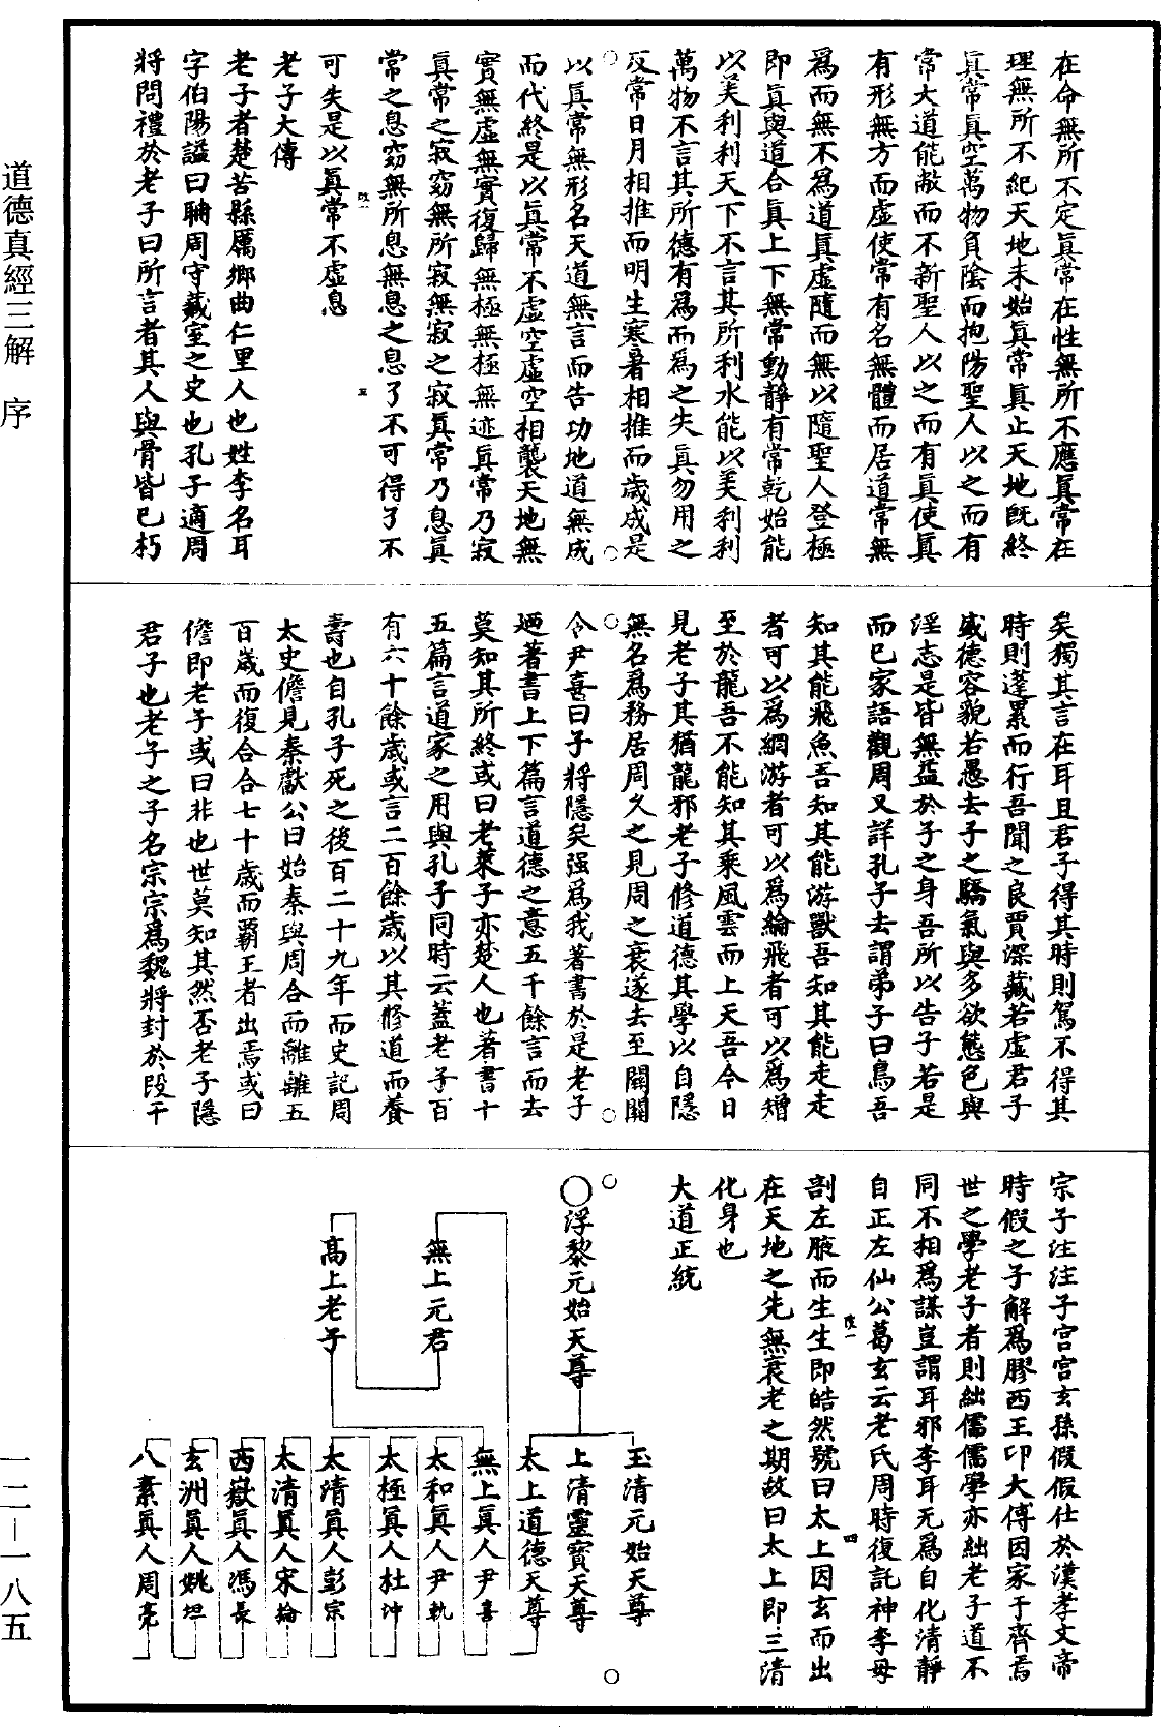 道德真經三解 序
一二—一八五
在命無所不定眞常在性無所不應眞常在
理無所不紀天地未始眞常眞止天地旣終
眞常眞空萬物負陰而抱陽聖人以之而有
常大道能敝而不新聖人以之而有眞使眞
有形無方而虛使常有名無體而居道常無
爲而無不爲道眞虛隨而無以隨聖人登極
即眞與道合眞上下無常動靜有常乾始能
以美利利天下不言其所利水能以美利利
萬物不言其所德有爲而爲之失眞勿用之
反常日月相推而明生寒暑相推而歲成是
以眞常無形名天道無言而告功地道無成
而代終是以眞常不虛空虛空相襲天地無
實無虛無實復歸無極無極無迹眞常乃寂
眞常之寂窈無所寂無寂之寂眞常乃息眞
常之息窈無所息無息之息了不可得了不
可失是以眞常不虛息
老子大傳
老子者楚苦縣厲鄉曲仁里人也姓李名耳
字伯陽謚曰聃周守藏室之史也孔子適周
將問禮於老子曰所言者其人與骨皆已朽
矣獨其言在耳且君子得其時則駕不得其
時則蓬累而行吾聞之良賈深藏若虛君子
盛德容貌若愚去子之驕氣與多欲態色與
淫志是皆無益於子之身吾所以告子若是
而已家語觀周又詳孔子去謂弟子曰鳥吾
知其能飛魚吾知其能游獸吾知其能走走
者可以爲網游者可以爲綸飛者可以爲矰
至於龍吾不能知其乘風雲而上天吾今日
見老子其猶龍邪老子修道德其學以自隱
無名爲務居周久之見周之衰遂去至關關
令尹喜曰子將隱矣强爲我著書於是老子
廼著書上下篇言道德之意五千餘言而去
莫知其所終或曰老萊子亦楚人也著書十
五篇言道家之用與孔子同時云蓋老子百
有六十餘歲或言二百餘歲以其修道而養
壽也自孔子死之後百二十九年而史記周
太史儋見秦獻公曰始秦與周合而離離五
百歲而復合合七十歲而霸王者出焉或曰
儋即老子或曰非也世莫知其然否老子隱
君子也老子之子名宗宗爲魏將封於段干
宗子注注子宫宫玄孫假假仕於漢孝文帝
時假之子解爲膠西王卬大傅因家于齊焉
世之學老子者則絀儒儒學亦絀老子道不
同不相爲謀豈謂耳邪李耳无爲自化清靜
自正左仙公葛玄云老氏周時復託神李母
剖左腋而生生即皓然號曰太上因玄而出
在天地之先無衰老之期故曰太上即三清
化身也
大道正統
○浮黎元始天尊
無上元君
高上老子
玉清元始天尊
上清靈寶天尊
太上道德天尊
無上眞人尹喜
太和眞人尹軌
太極眞人杜冲
太清眞人彭宗
太清眞人宋倫
西嶽眞人馮長
玄洲眞人姚坦
八素眞人周亮